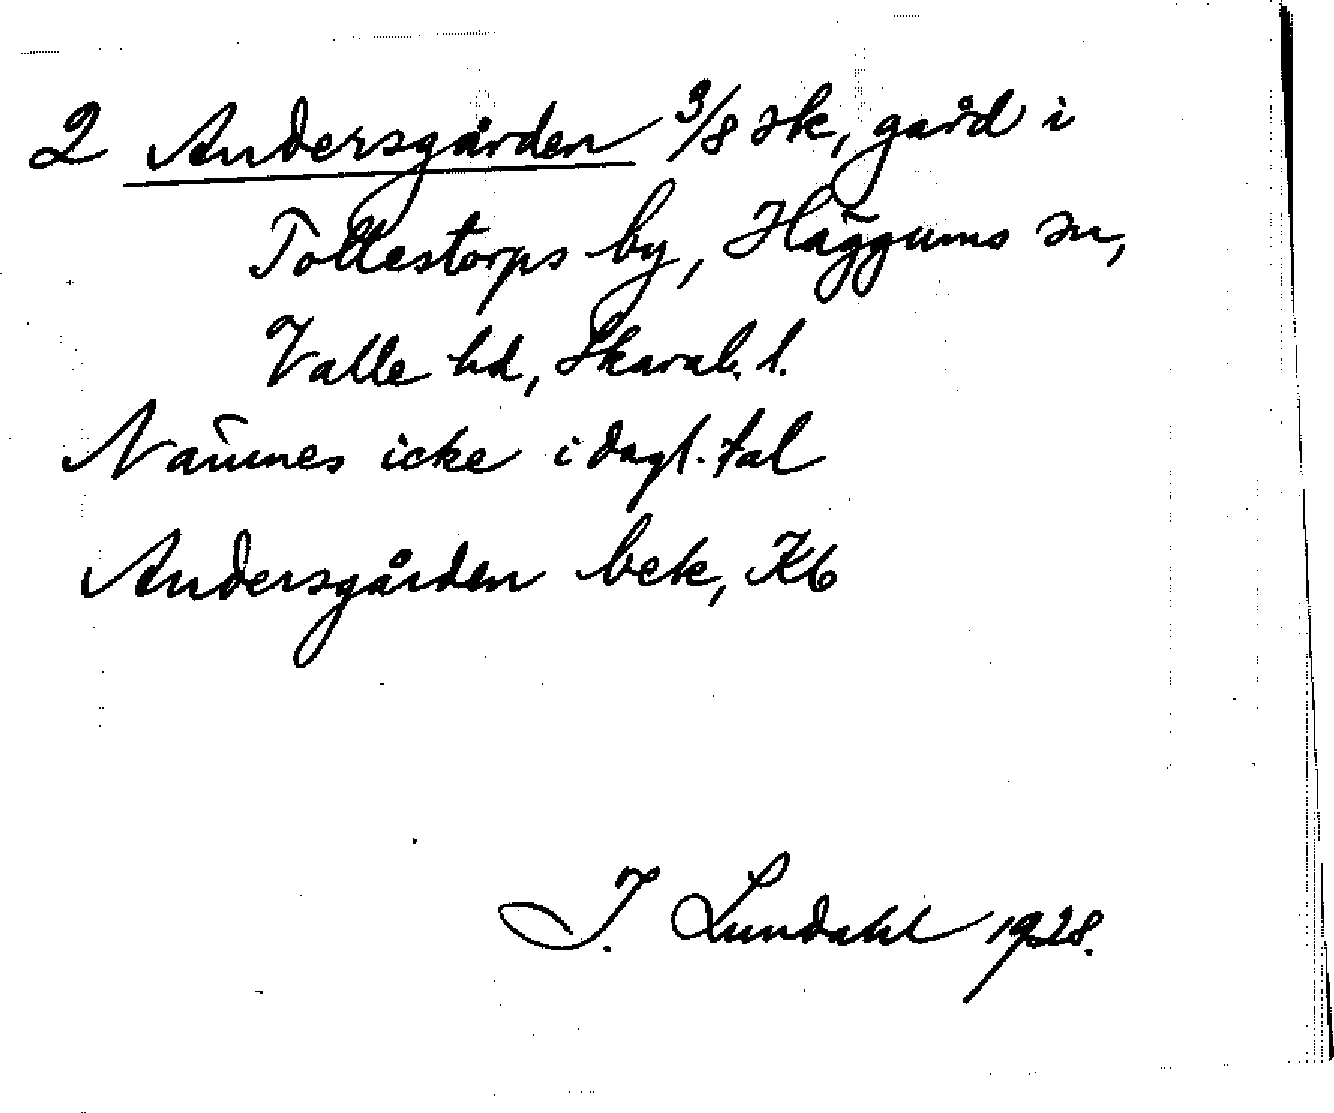 2 Andersgården 3/8 sk, gård i
Tollestorps by, Häggums sn,
Valle hd, Skarab. l.
Nämnes icke i dagl. tal
Andersgården bek, Kb
I. Lundahl 1928.